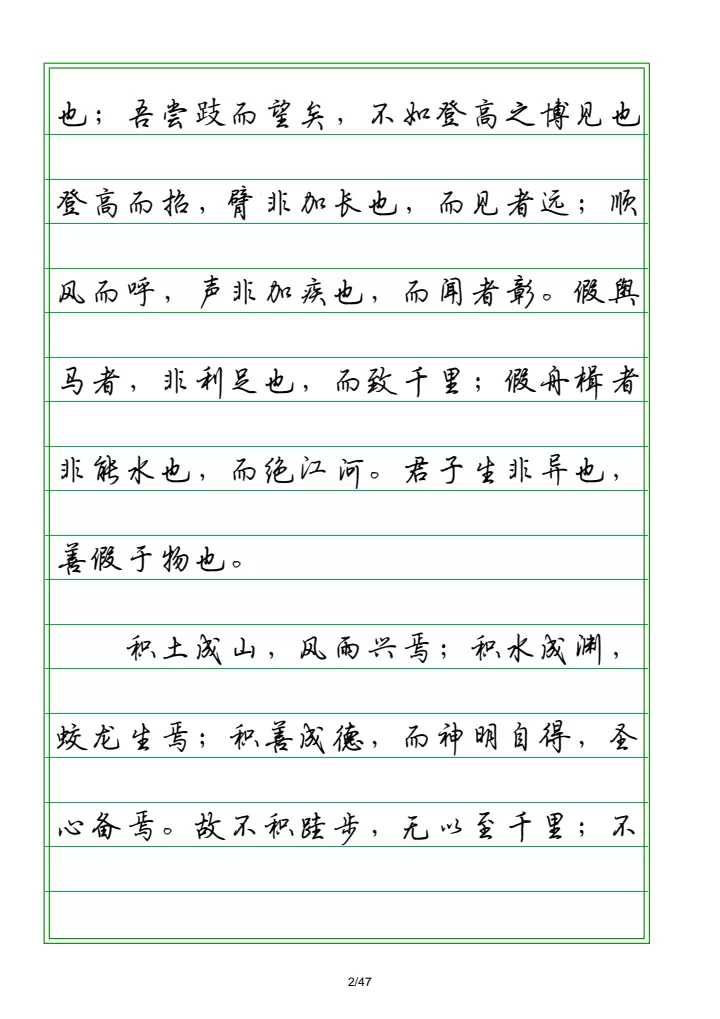 也；吾尝跂而望矣，不如登高之博见也
登高而招，臂非加长也，而见者远；顺
风而呼，声非加疾也，而闻者彰。假舆
马者，非利足也，而致千里；假舟楫者
非能水也，而绝江河。君子生非异也，
善假于物也。
积土成山，风雨兴焉；积水成渊，
蛟龙生焉；积善成德，而神明自得，圣
心备焉。故不积跬步，无以至千里；不
2/47